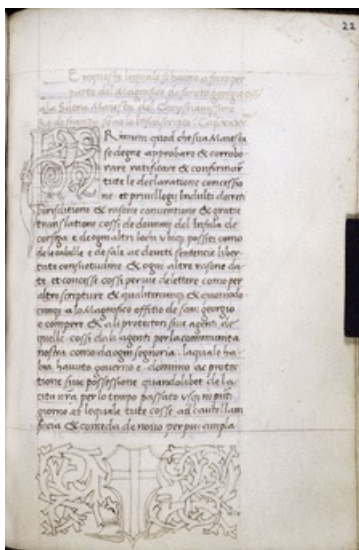 22
E inqueste lequale si hanno a fare per
parte del Magnifico
a la Sacra Maiesta del Chrystianissimo
Re de franza sono le infrascripte
PRimum quod che sua Maiesta
se degne approbare & corrobo
rare ratificare & confirmar
tute le declaratione concessio
ne et privillegii inclulti decreti
iurisditione & rasone conventione & gratie
translatione cossi de dominii del Insula de
corsega e de ogni altri lochi vbicq possiti como
de le gabelle e de sale ac deuiti sententie liber
tate consuetudine & ogni altre rasone da
te et concesse cossi per vie de lettere como per
altre scripture & qualitercumq & quomodo
cumq a lo Magnifico offitio de sam georgio
e compere & a li protectori siue agenti de
quelle cossi da li agenti per la communita
nostra como da ogni segnoria laquale ha
ha hauuto gouerno e dominio ac protec
tione siue possessione quandolibet de la
cita nra per lo tempo passato vsq in presenti
giorno et lequale tute cosse ad cautellam
facia & conceda de nouo per piu ampla